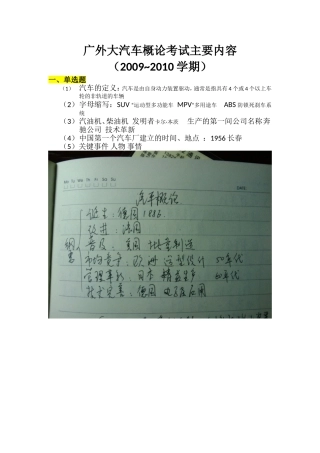 广外大汽车概论考试主要内容
（2009~2010 学期）
一、单选题
（1） 汽车的定义：汽车是由自身动力装置驱动，通常是指具有 4 个或 4 个以上车
轮的非轨道的车辆
（2）字母缩写：SUV “运动型多功能车 MPV“多用途车 ABS 防锁死刹车系
统
（3）汽油机、柴油机 发明者 卡尔·本茨 生产的第一间公司名称奔
驰公司 技术革新
（4）中国第一个汽车厂建立的时间、地点 ：1956 长春
（5）关键事件 人物 事情
汽车概论
诞生：德国 1886.
改进：法国
普及：美国 批量制造
市场竞争：欧洲 造型设计 50年代
管理革新：日本 精益生产 70年代
技术完善：德国 电子产品应用